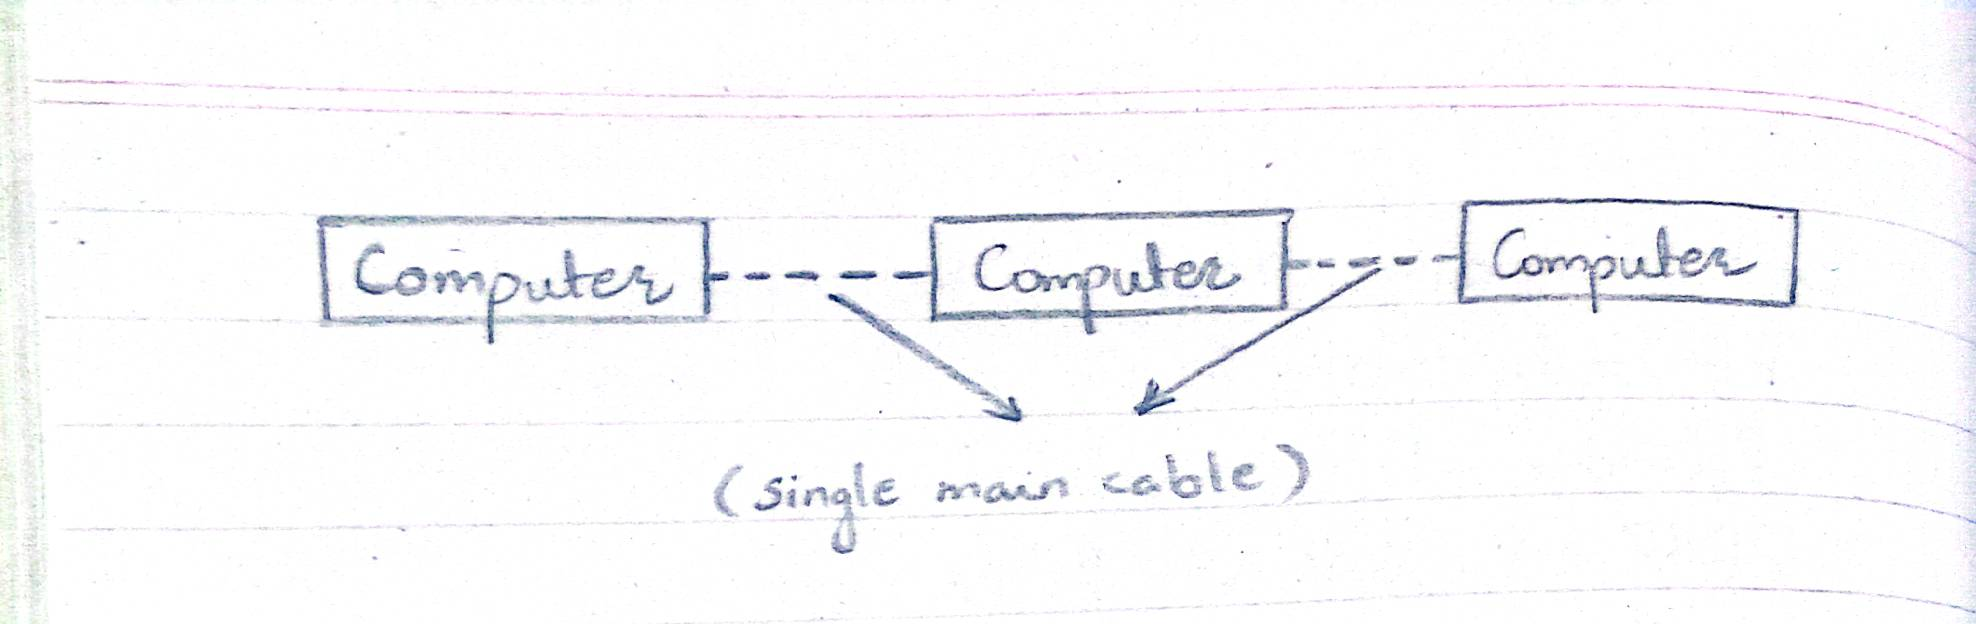 Computer Computer Computer
(single main cable)